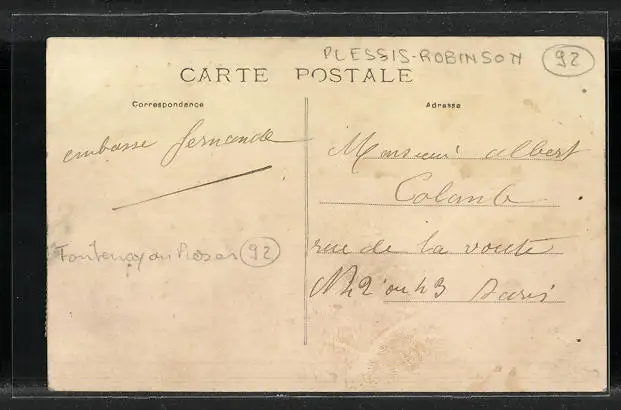 PLESSIS-ROBINSON 92
CARTE POSTALE
Correspondance
Adresse
embrasse fernande
Monsieur albert
Colomb
rue de la voute
N 42 ou 43 Paris
Fontenay au Roses 92